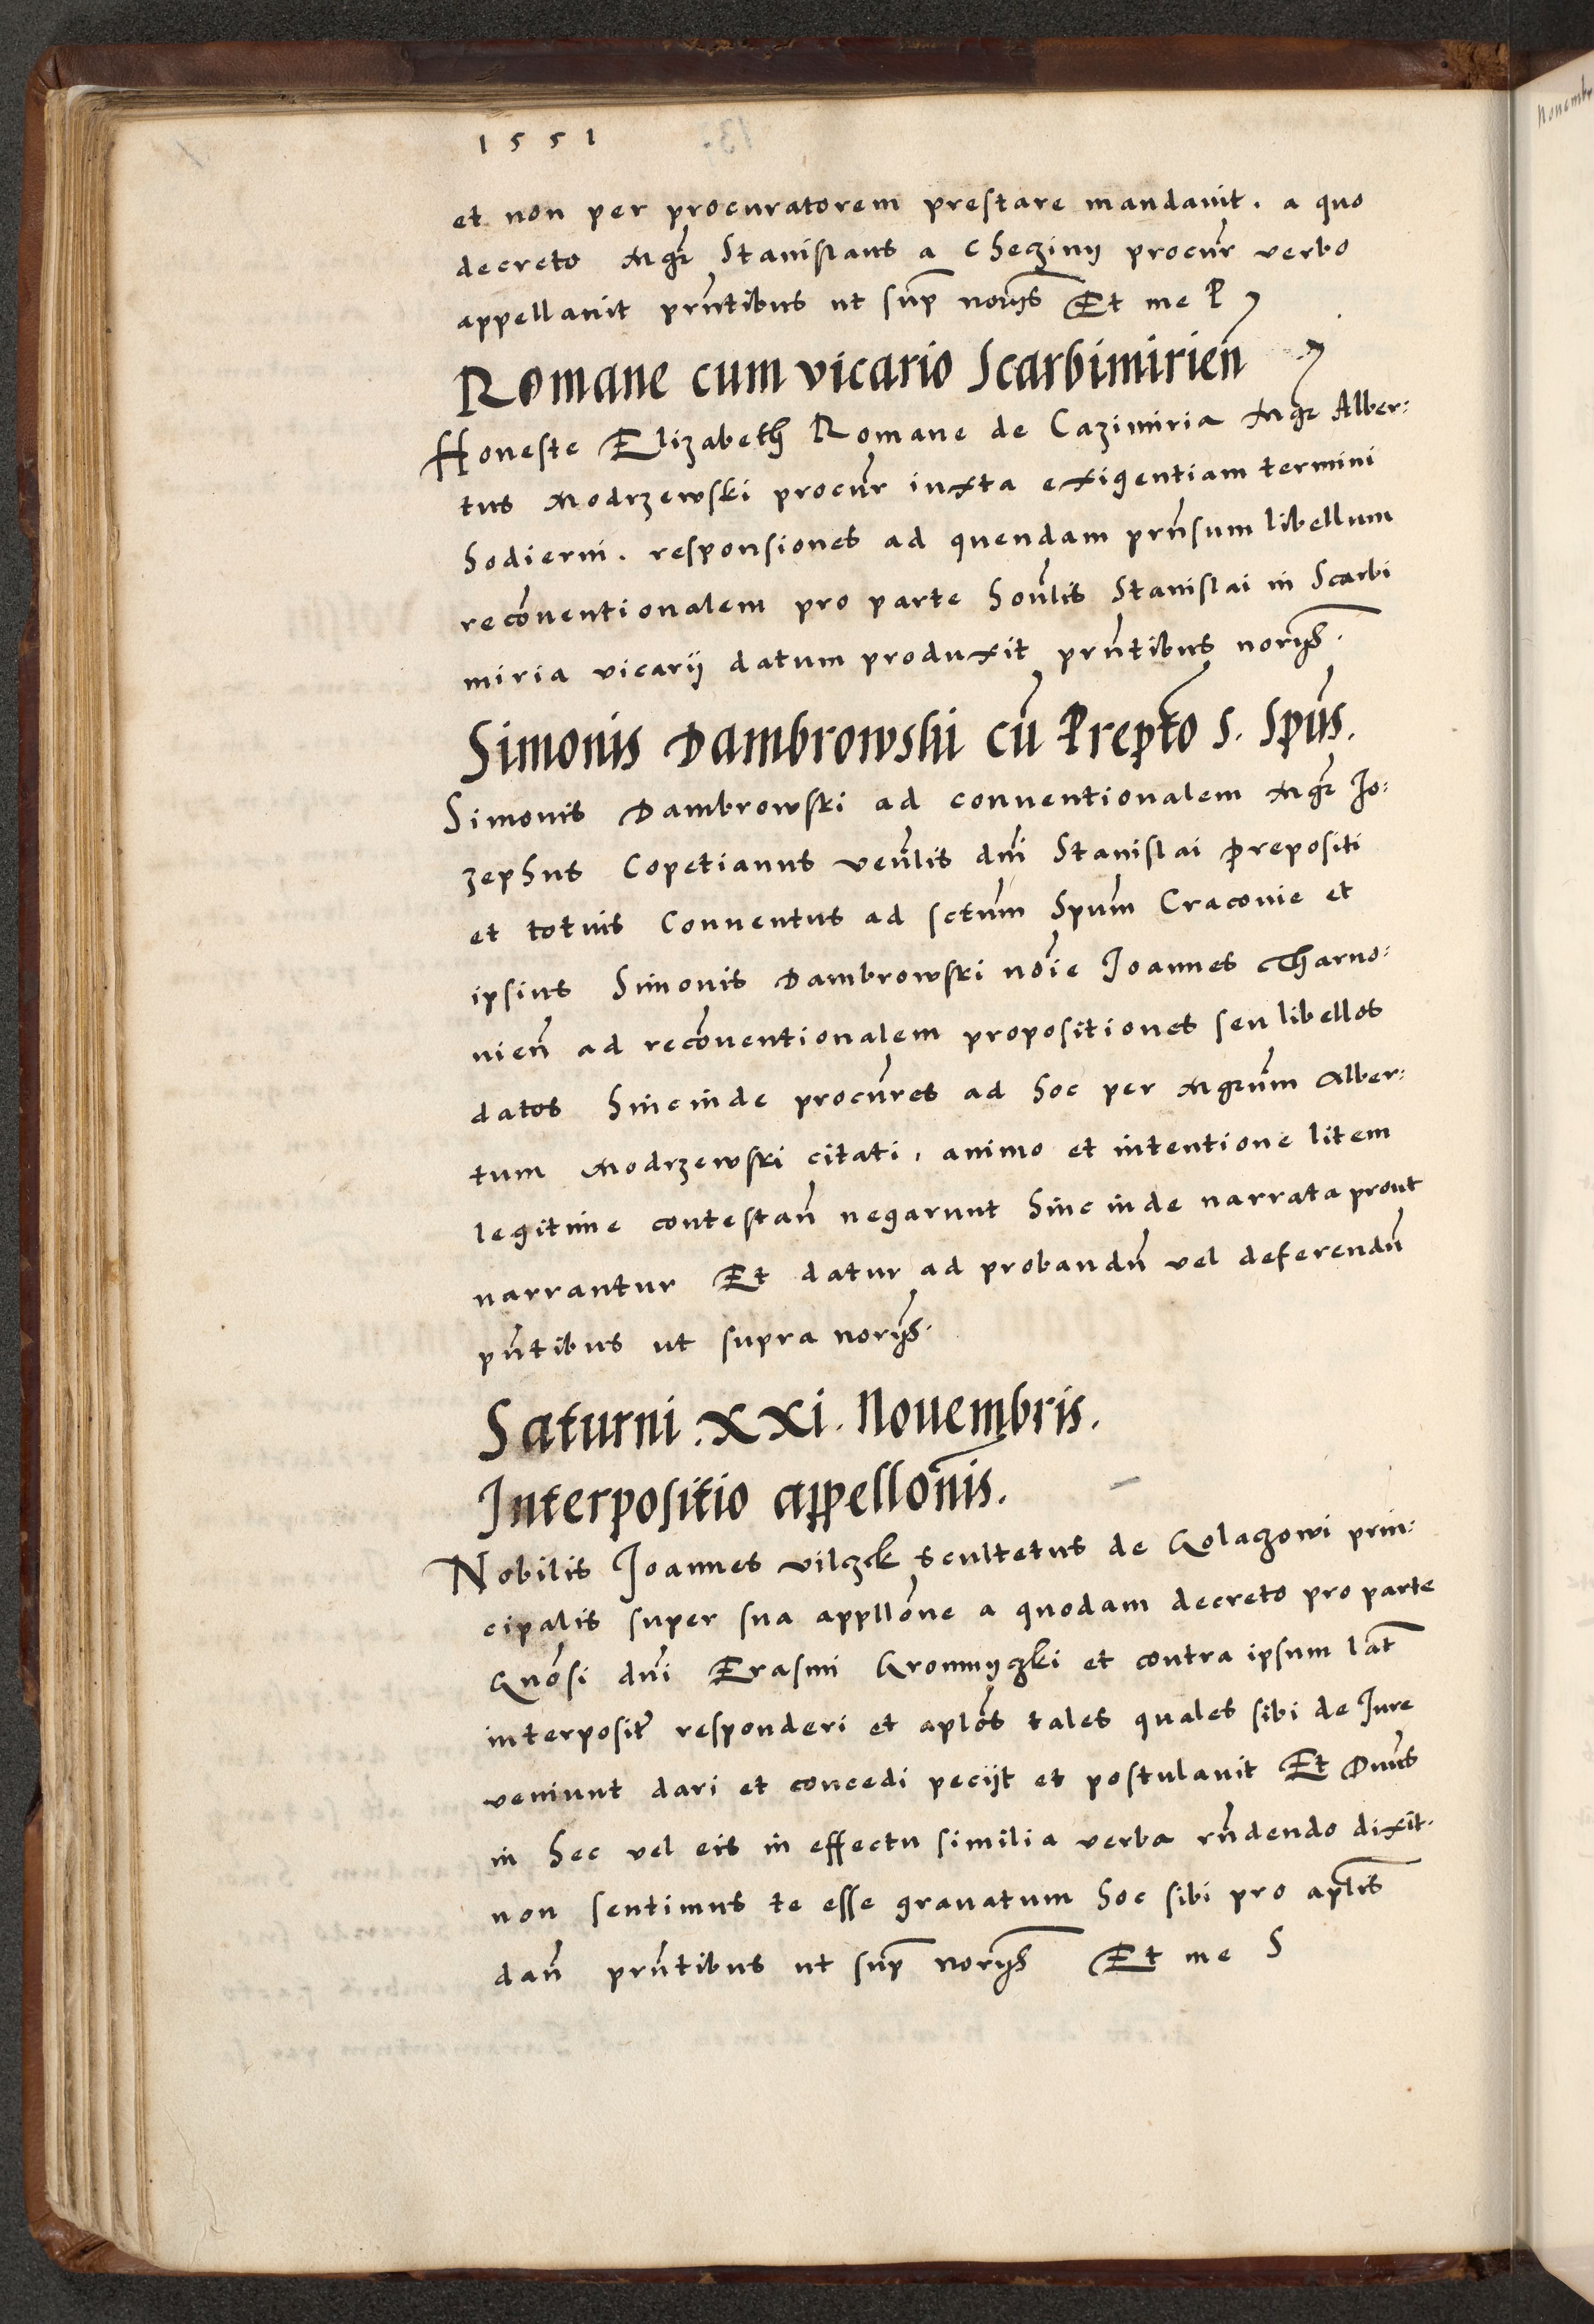 1551
et non per procuratorem prestare mandauit. a quo
decreto Mgr̃ Stanislaus a Checziny procur̃ verbo
appellauit prñtibus ut sup̃ norijs Et me P
Romane cum vicario Scarbimirieñ
Honeste Elizabeth Romane de Cazimiria Mgr̃ Alber:
tus Modrzewski procur̃ iuxta exigentiam termini
hodierni. responsiones ad quendam prñsum libellum
recõuentionalem pro parte honłis Stanislai in Scarbi
miria vicarij datum produxit prñtibus norijs.
Simonis Dambrowski cũ Prepto S. Spũs.
Simonis Dambrowski ad conuentionalem Mgr̃ Jo:
zephus Copetianus veñlis dñi Stanislai prepositi
et totius Conuentus ad sctũm Spũm Cracouie et
ipsius Simonis Dambrowski nõie Joannes Tharno:
uieñ ad recõuentionalem propositiones seu libellos
datos hincinde procũres ad hoc per Mgrũm Alber:
tum Modrzewski citati, animo et intentione litem
legitime contestañ negarunt hinc inde narrata prout
narrantur Et datur ad probandũ vel deferendũ
pñtibus ut supra norijs.
Saturni .xxi. Nouembris.
Interpositio appellõnis.
Nobilis Joannes vilczek scultetus de Golaczowi prin:
cipalis super sua appllõne a quodam decreto pro parte
Gnõsi dñi Erasmi Gromyczki et contra ipsum lat̃
interposit̃ responderi et aplõs tales quales sibi de Jure
veniunt dari et concedi pecijt et postulauit Et Dñus
in hec vel eis in effectu similia verba rñdendo dixit.
non sentimus te esse grauatum hoc sibi pro aplis
dañ prñtibus ut sup̃ norijs Et me S
Nouembr